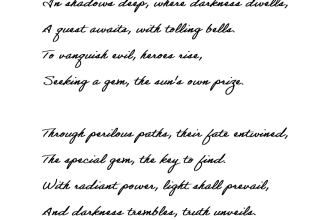 In shadows deep, where darkness dwells,
A quest awaits, with tolling bells.
To vanquish evil, heroes rise,
Seeking a gem, the sun's own prize.

Through perilous paths, their fate entwined,
The special gem, the key to find.
With radiant power, light shall prevail,
And darkness trembles, truth unveils.